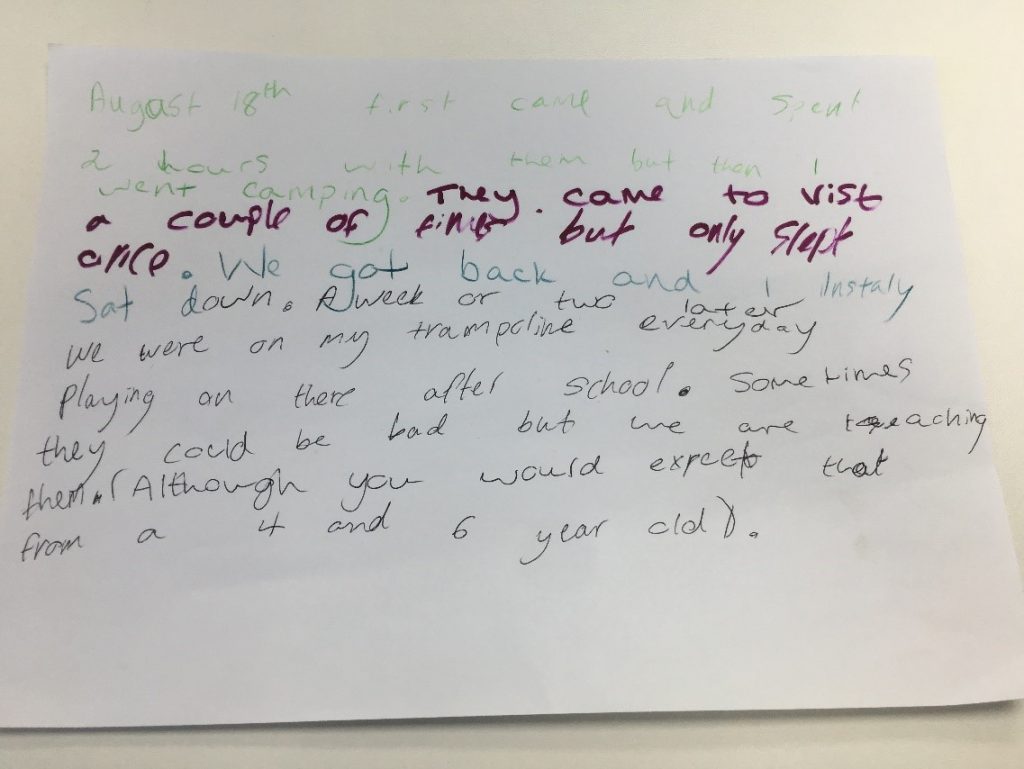 August 18th first came and spent
2 hours with them but then I
went camping. They. came to vist
a couple of times but only slept
once. We got back and I instaly
Sat down. A week or two later
we were on my trampoline everyday
Playing on there after school. Sometimes
they could be bad but we are teaching
them. (Although you would expect that
from a 4 and 6 year old).